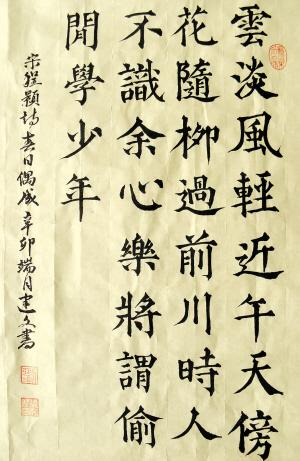 雲淡風輕近午天傍
花隨柳過前川時人
不識余心樂將謂偷
閒學少年
宋程顥詩春日偶成辛卯端月建文書